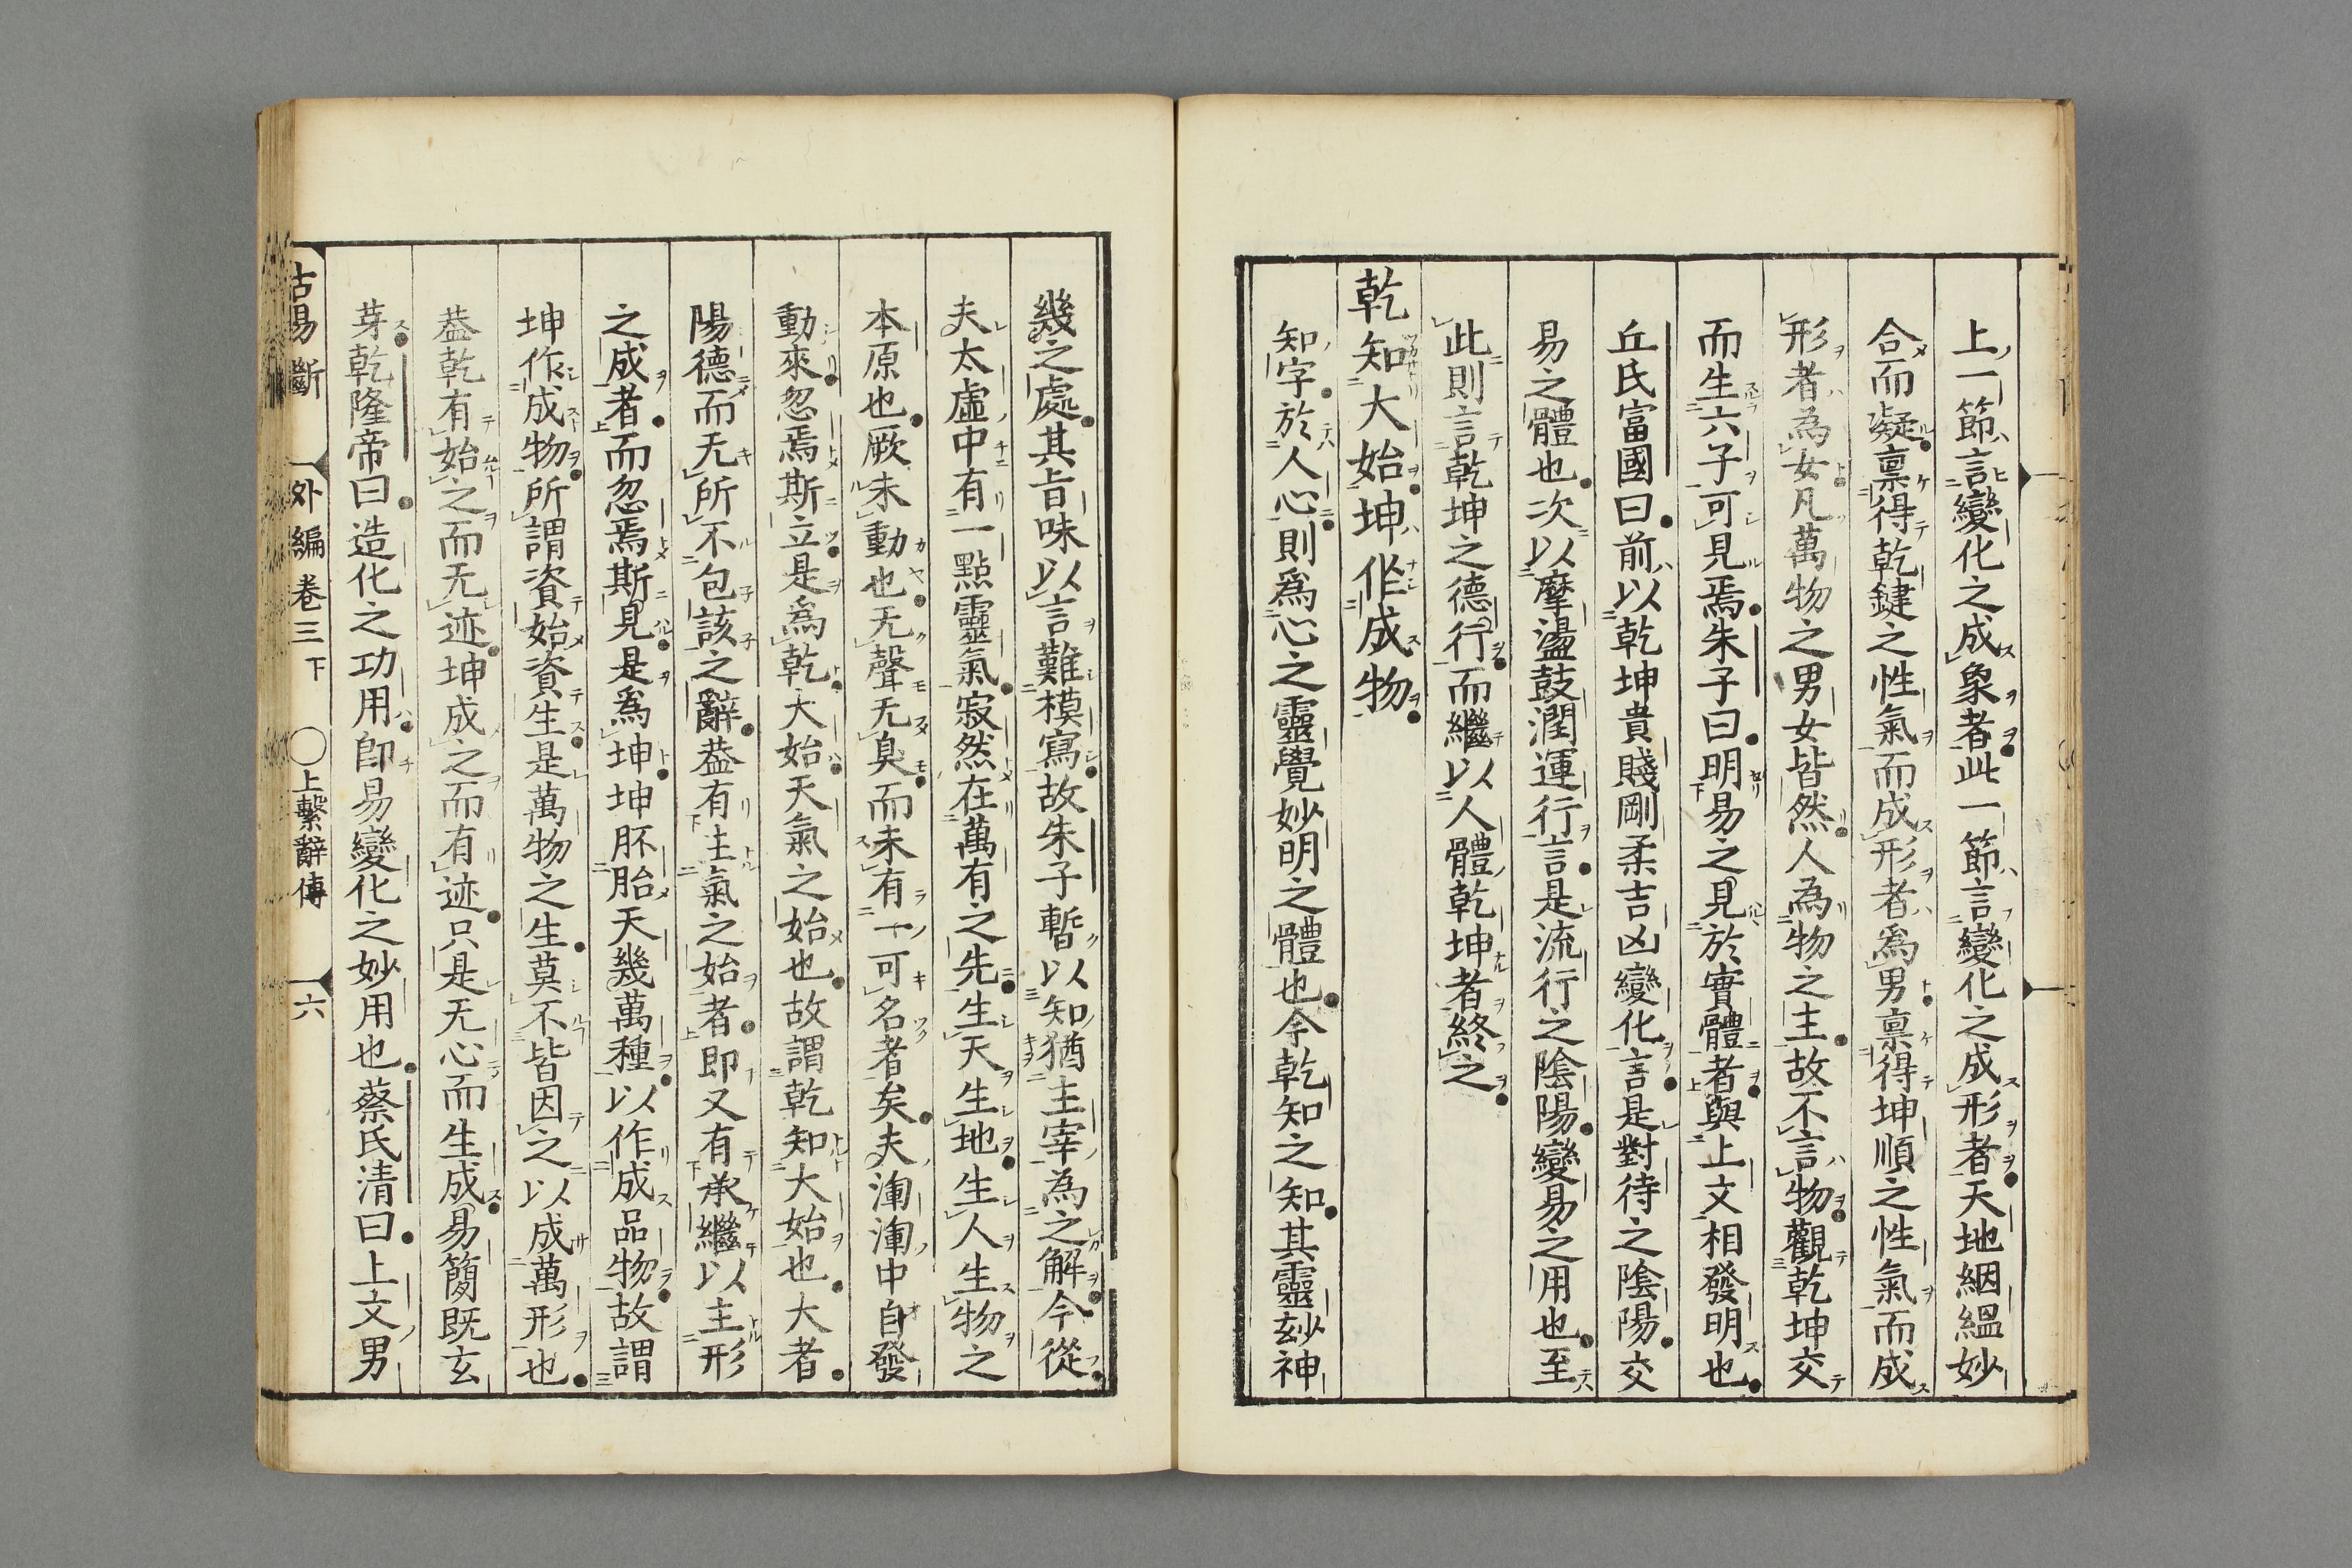 上一節言變化之成象者此一節言變化之成形者天地絪縕妙
合而凝稟得乾鍵之性氣而成形者爲男稟得坤順之性氣而成
形者為女凡萬物之男女皆然人為物之主故不言物觀乾坤交
而生六子可見焉朱子曰明易之見於實體者與上文相發明也
丘氏富國曰前以乾坤貴賤剛柔吉凶變化言是對待之陰陽交
易之體也次以摩盪鼓潤運行言是流行之陰陽變易之用也至
此則言乾坤之德行而繼以人體乾坤者終之
乾知大始坤作成物
知字於人心則爲心之靈覺妙明之體也今乾知之知其靈玅神
幾之處其旨味以言難模寫故朱子暫以知猶主宰為之解今從
夫太虛中有一點靈氣寂然在萬有之先生天生地生人生物之
本原也厥未動也无聲无臭而未有一可名者矣夫渾渾中自發
動來忽焉斯立是為乾大始天氣之始也故謂乾知大始也大者
陽德而无所不包該之辭葢有主氣之始者即又有承繼以主形
之成者而忽焉斯見是爲坤坤胚胎天幾萬種以作成品物故謂
坤作成物所謂資始資生是萬物之生莫不皆因之以成萬形也
葢乾有始之而无迹坤成之而有迹只是无心而生成易簡既玄
芽乾隆帝曰造化之功用卽易變化之妙用也蔡氏清曰上文男
古易斷 外編卷三下 〇上繫辭傳 六